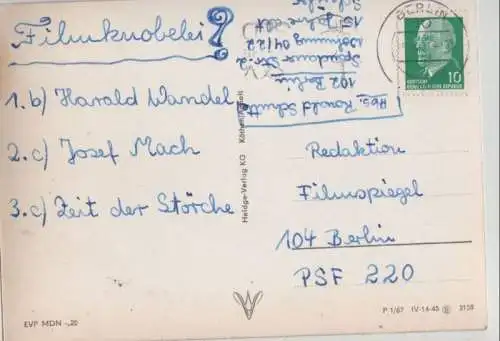 Filmknobelei?
1. b) Harald Wandel
2. c) Josef Mach
3. c) Zeit der Störche
Abs. Ronald
102 Berlin
Spandauer Str. 2
Wohnung 04/22
15 Jahre alt
Schüler
BERLIN
10
Redaktion
Filmspiegel
104 Berlin
PSF 220
Heldge-Verlag KG Köthen/Anhalt
EVP MDN -,20
P 1/67 IV-14-45 2158